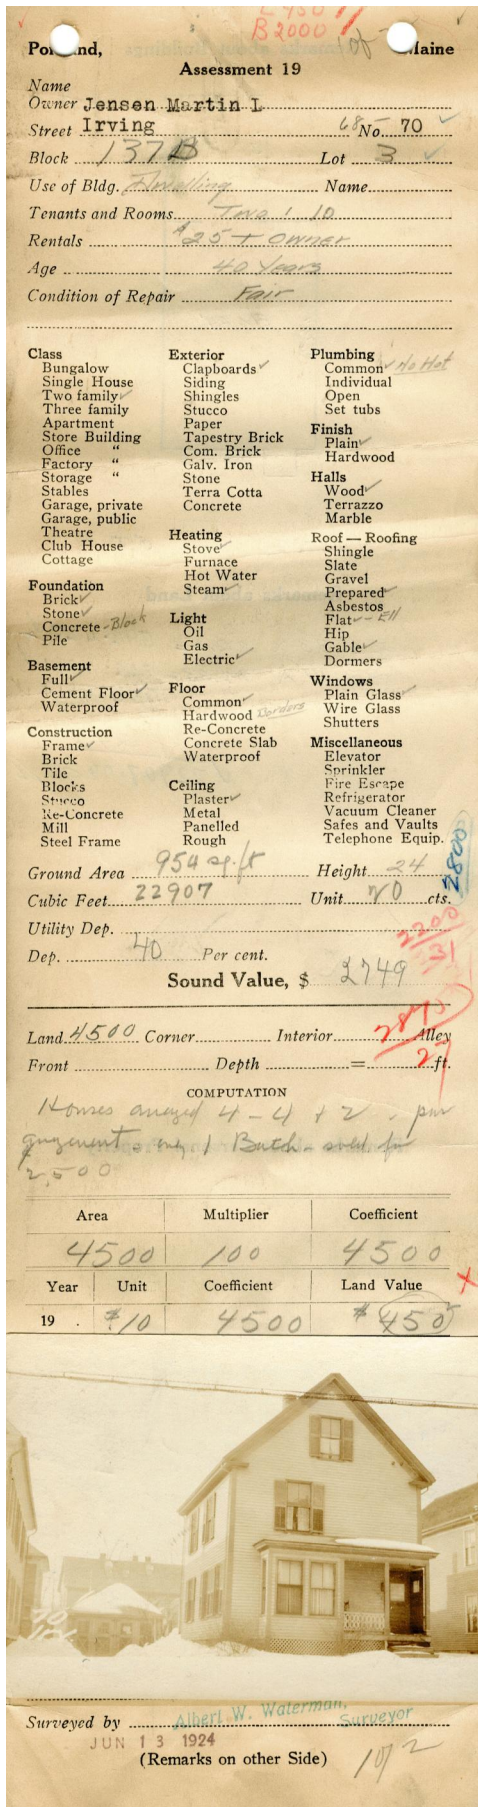 L 450
B 2000
1 of
Portland, Maine
Assessment 19
Name
Owner Jensen Martin L
Street Irving 68 No. 70 ✓
Block 137B Lot 3 ✓
Use of Bldg. Dwelling Name
Tenants and Rooms Two : 10
Rentals $25 + Owner
Age 40 Years
Condition of Repair Fair
Class
Bungalow
Single House
Two family ✓
Three family
Apartment
Store Building
Office "
Factory "
Storage "
Stables
Garage, private
Garage, public
Theatre
Club House
Cottage
Foundation
Brick ✓
Stone ✓
Concrete - Block
Pile
Basement
Full ✓
Cement Floor ✓
Waterproof
Construction
Frame ✓
Brick
Tile
Blocks
Stucco
Re-Concrete
Mill
Steel Frame
Exterior
Clapboards ✓
Siding
Shingles
Stucco
Paper
Tapestry Brick
Com. Brick
Galv. Iron
Stone
Terra Cotta
Concrete
Heating
Stove ✓
Furnace
Hot Water
Steam ✓
Light
Oil
Gas
Electric ✓
Floor
Common ✓
Hardwood Borders
Re-Concrete
Concrete Slab
Waterproof
Ceiling
Plaster ✓
Metal
Panelled
Rough
Plumbing
Common ✓ No Hot
Individual
Open
Set tubs
Finish
Plain ✓
Hardwood
Halls
Wood ✓
Terrazzo
Marble
Roof — Roofing
Shingle
Slate
Gravel
Prepared ✓
Asbestos
Flat ✓ - Ell
Hip
Gable ✓
Dormers
Windows
Plain Glass ✓
Wire Glass
Shutters
Miscellaneous
Elevator
Sprinkler
Fire Escape
Refrigerator
Vacuum Cleaner
Safes and Vaults
Telephone Equip.
2800
Ground Area 954 sq. ft Height 24
Cubic Feet 22907 Unit 20 cts.
Utility Dep.
2200
31
Dep. 40 Per cent.
Sound Value, $ 2749
Land 4500 Corner Interior Alley
Front Depth = ft.
COMPUTATION
Houses 4 - 4 + 2 -
1 Bath - sold for
2,500
Area Multiplier Coefficient
4500 100 4500
Year Unit Coefficient Land Value
19 . $.10 4500 $ 450
70
Surveyed by Albert W. Waterman, Surveyor
JUN 13 1924
(Remarks on other Side)